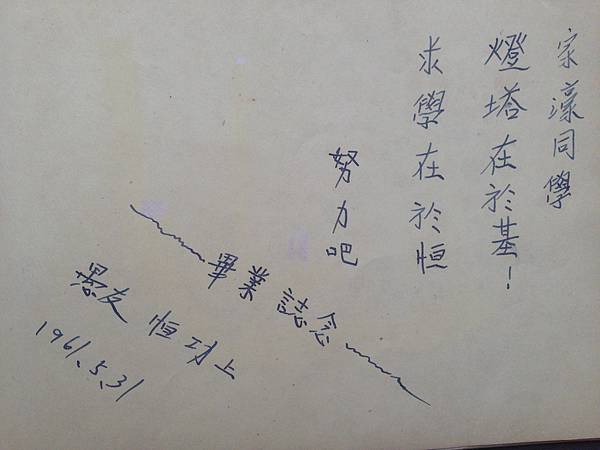 家濠同學
燈塔在於基！
求學在於恒
努力吧
畢業誌念
愚友 恒功上
1961.5.31